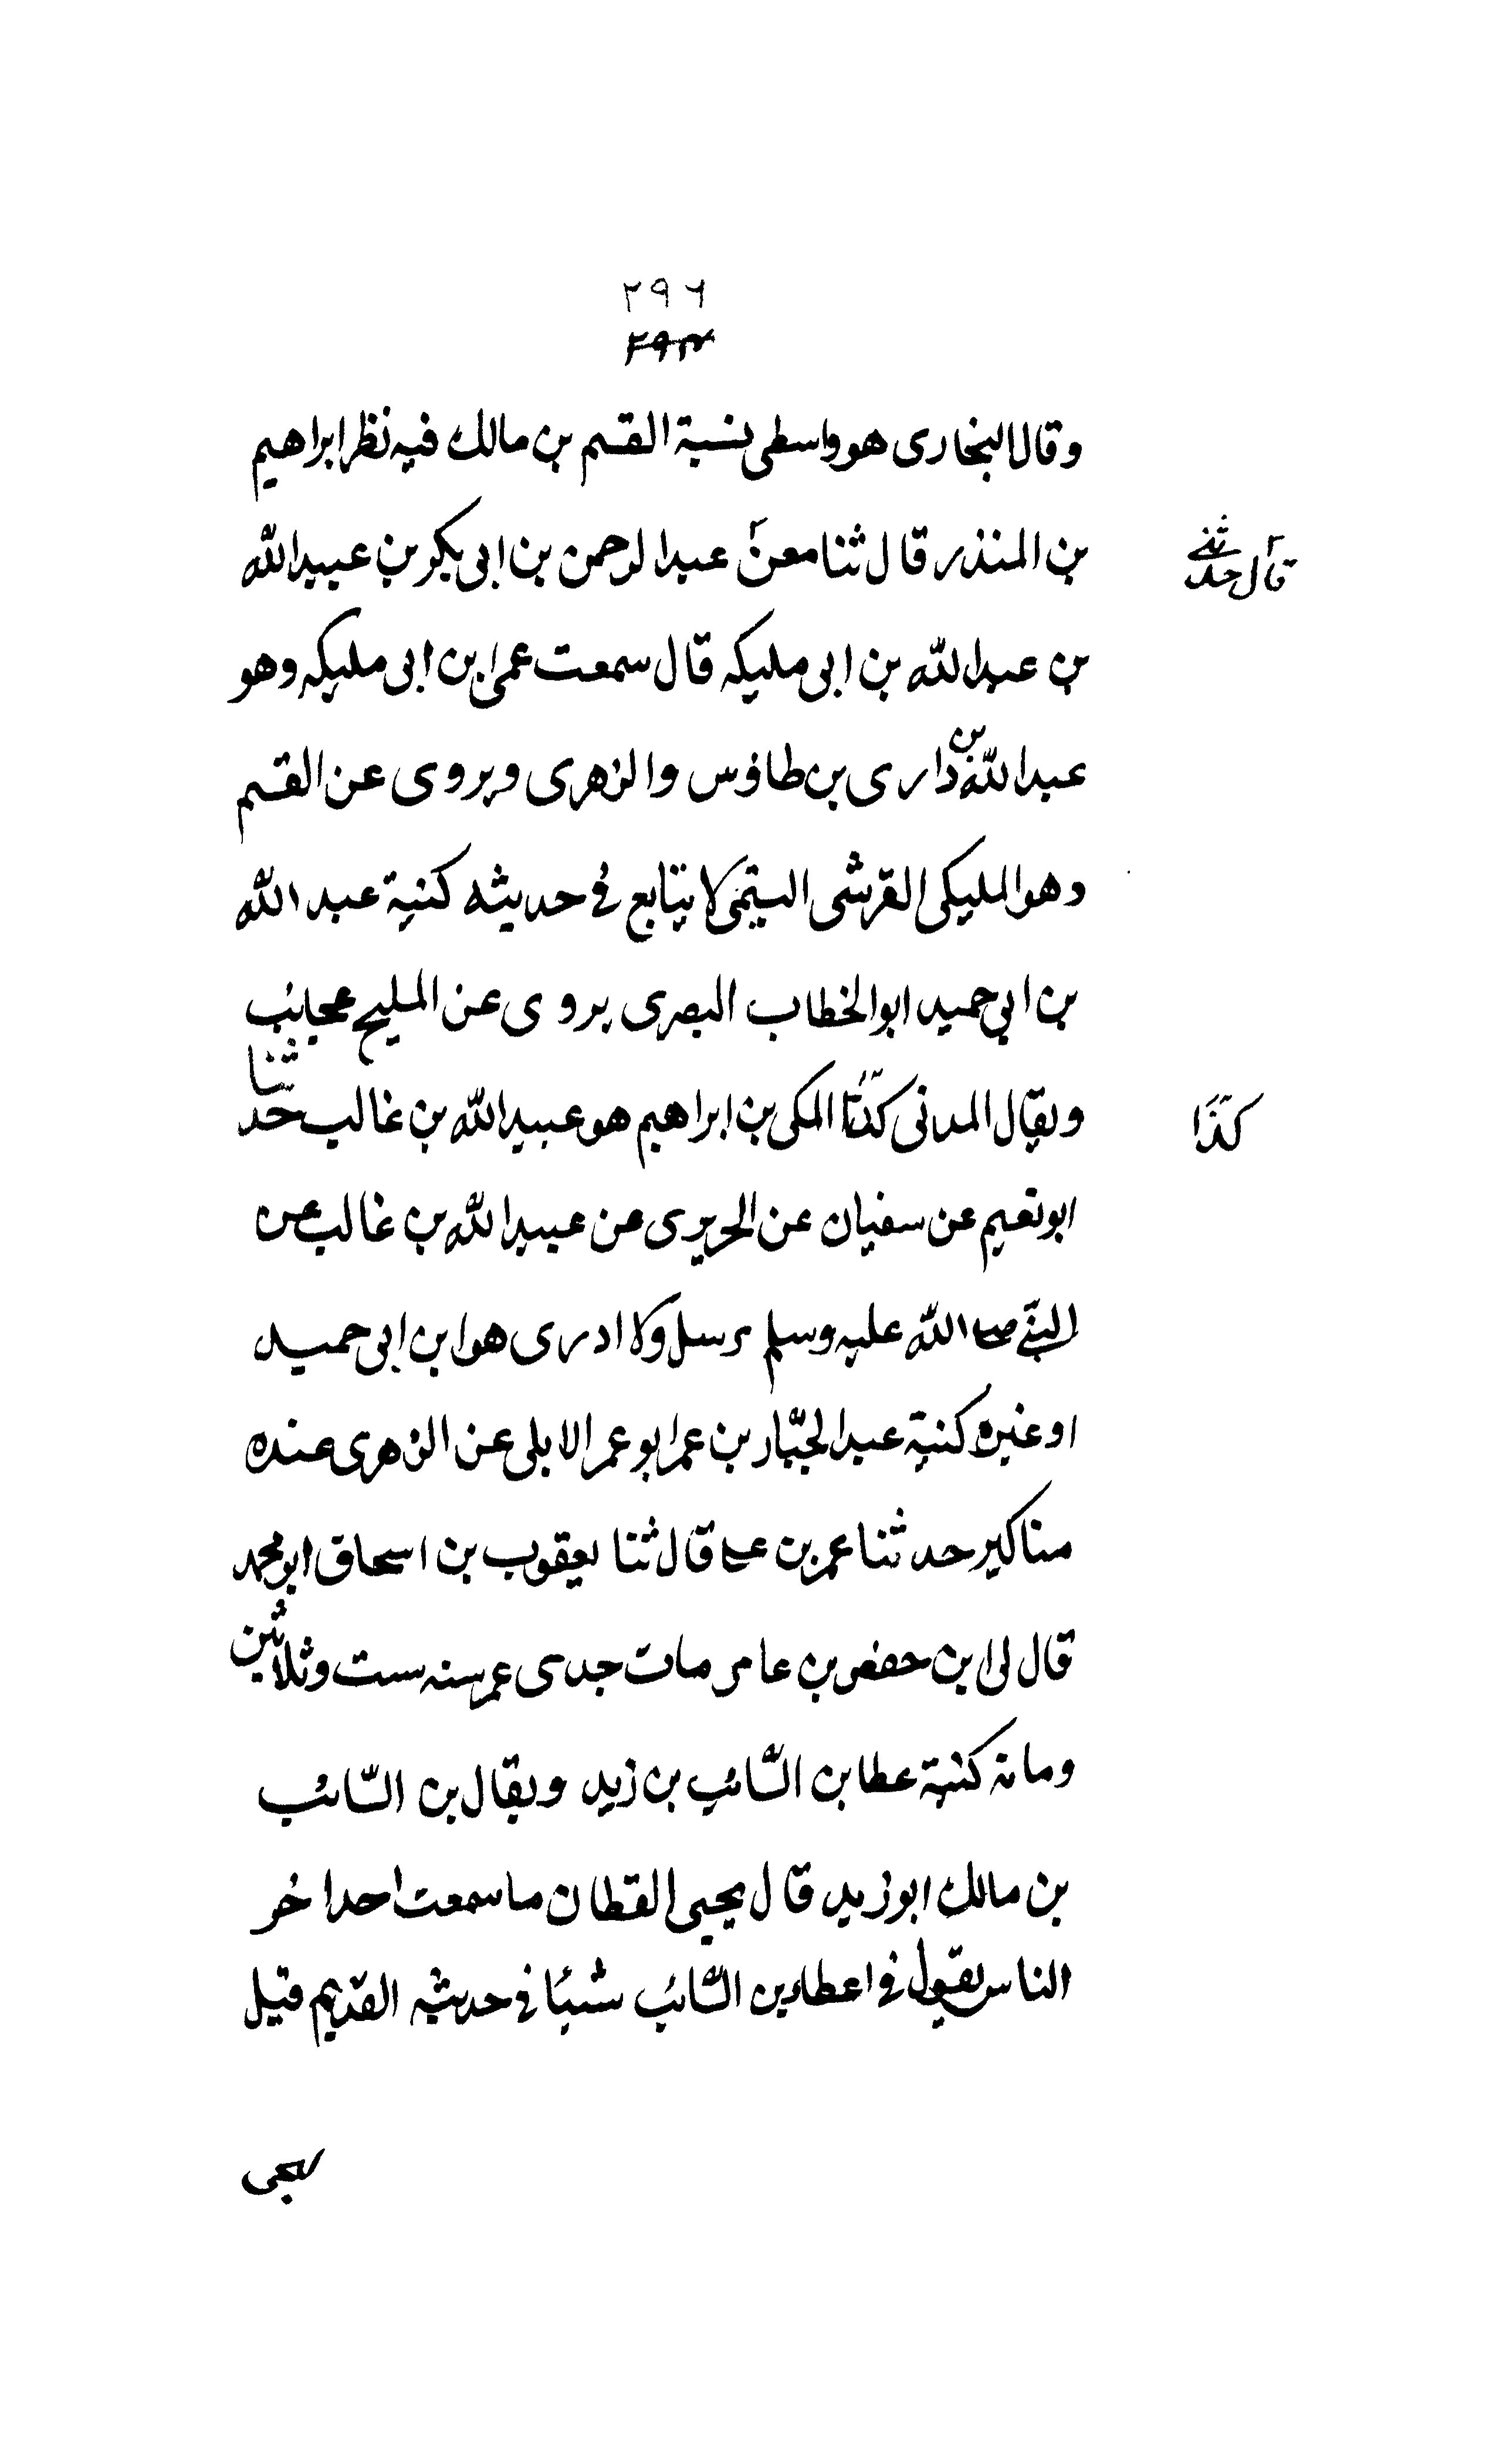 ٢٩٦
٢٩٣
وقال البخارى هو واسطى نسبة القسم بن مالك فيه نظر ابراهيم
بن المنذر قال ثنا معن عبد الرحمن بن ابى بكر بن عبيد الله
قال حدثنى
بن عبد الله بن ابى مليكه قال سمعت عمى ابن ابى مليكه وهو
عبد الله بن دارى بن طاؤس والزهرى ويروى عن القسم
وهو المليكى القرشى التيمى لا يتابع فى حديثه كنية عبد الله
بن ابى حميد ابو الخطاب البصرى يروى عن المليح عجائب
ويقال المدنى كذا المكى بن ابراهيم هو عبيد الله بن غالب حدثنا
كذا
ابو نعيم عن سفيان عن الحريرى عن عبيد الله بن غالب عن
النبى صلى الله عليه وسلم رسل ولا ادرى هو ابن ابى حميد
او غيره كنية عبد الجبّار بن عمر ابو عمر الايلى عن الزهرى عنده
مناكير حدثنا عمر بن على قال ثنا يعقوب بن اسحاق ابو محمد
قال لى ابن حفص بن عامر مات جدى عمر سنه ست وثلاثين
ومائه كنية عطا بن السّائب بن زيد ويقال بن السّائب
بن مالك ابو زيد قال يحيى القطان ما سمعت احدا خر
الناس يقول فى اعطاء بن السّائب شيئا فى حديثه القديم قيل